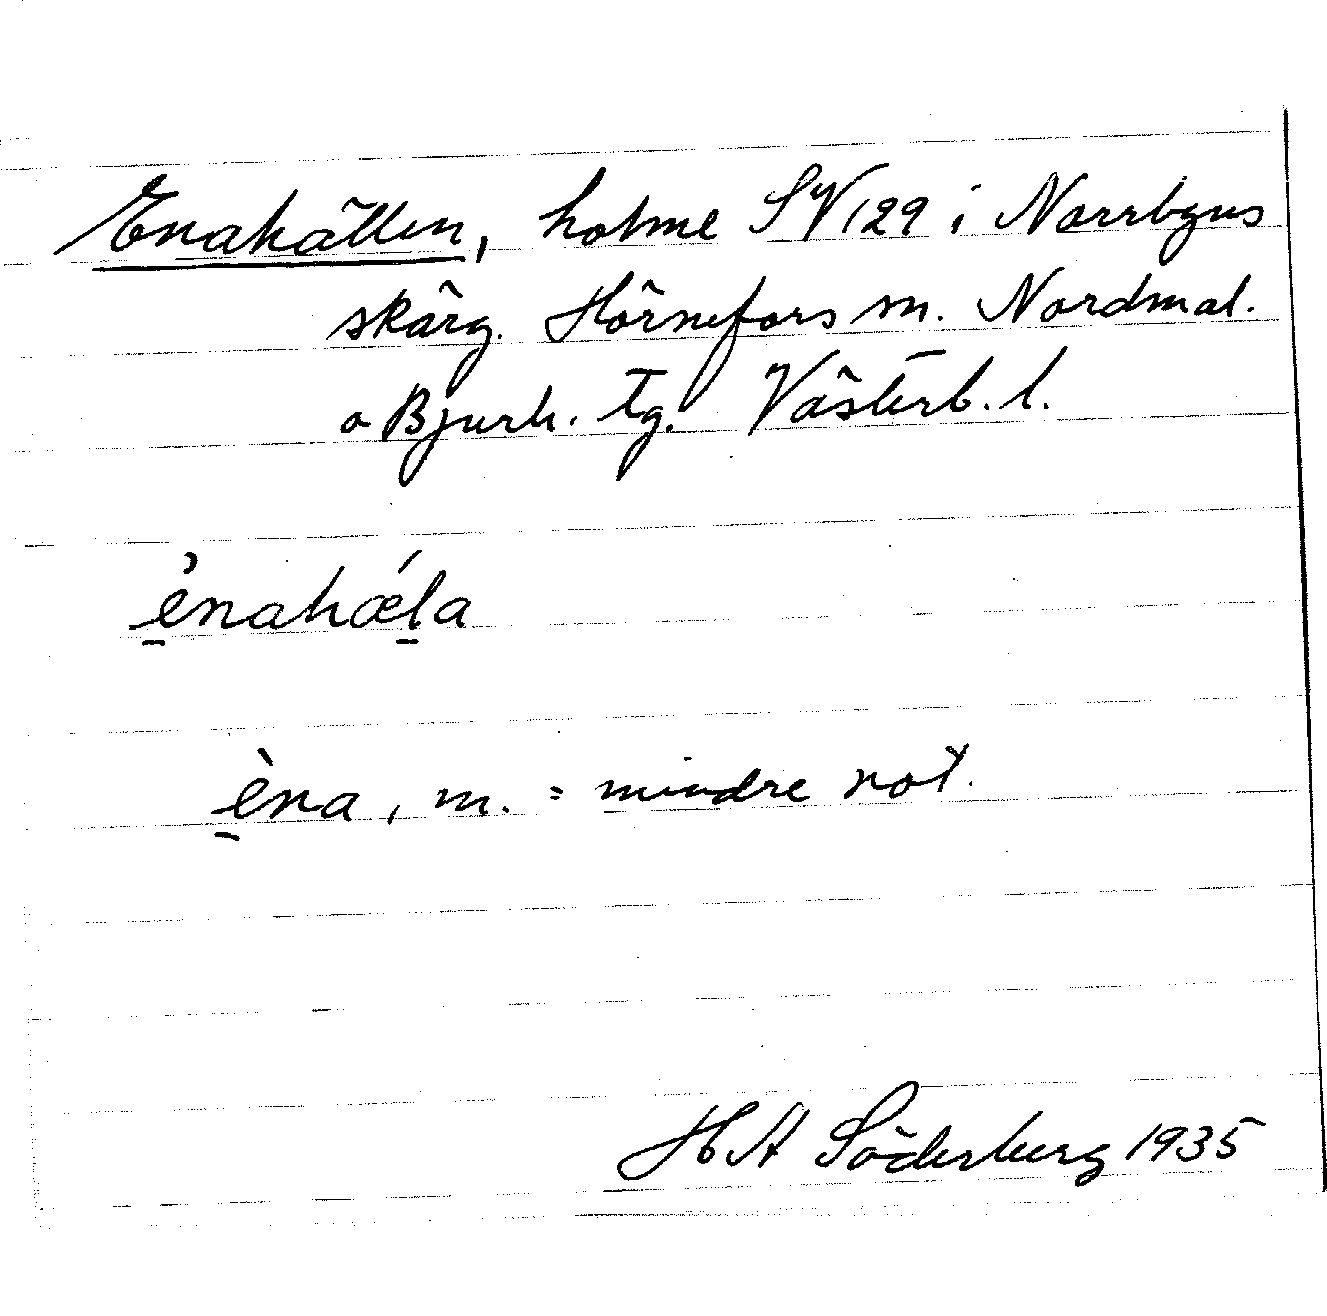 Enahällen, holme SV 129 i Norrbyns
skärg. Hörnefors sn. Nordmal.
o Bjurh. tg. Västerb. l.
ènahǽla
èna, m. = mindre not.
H A Söderberg 1935